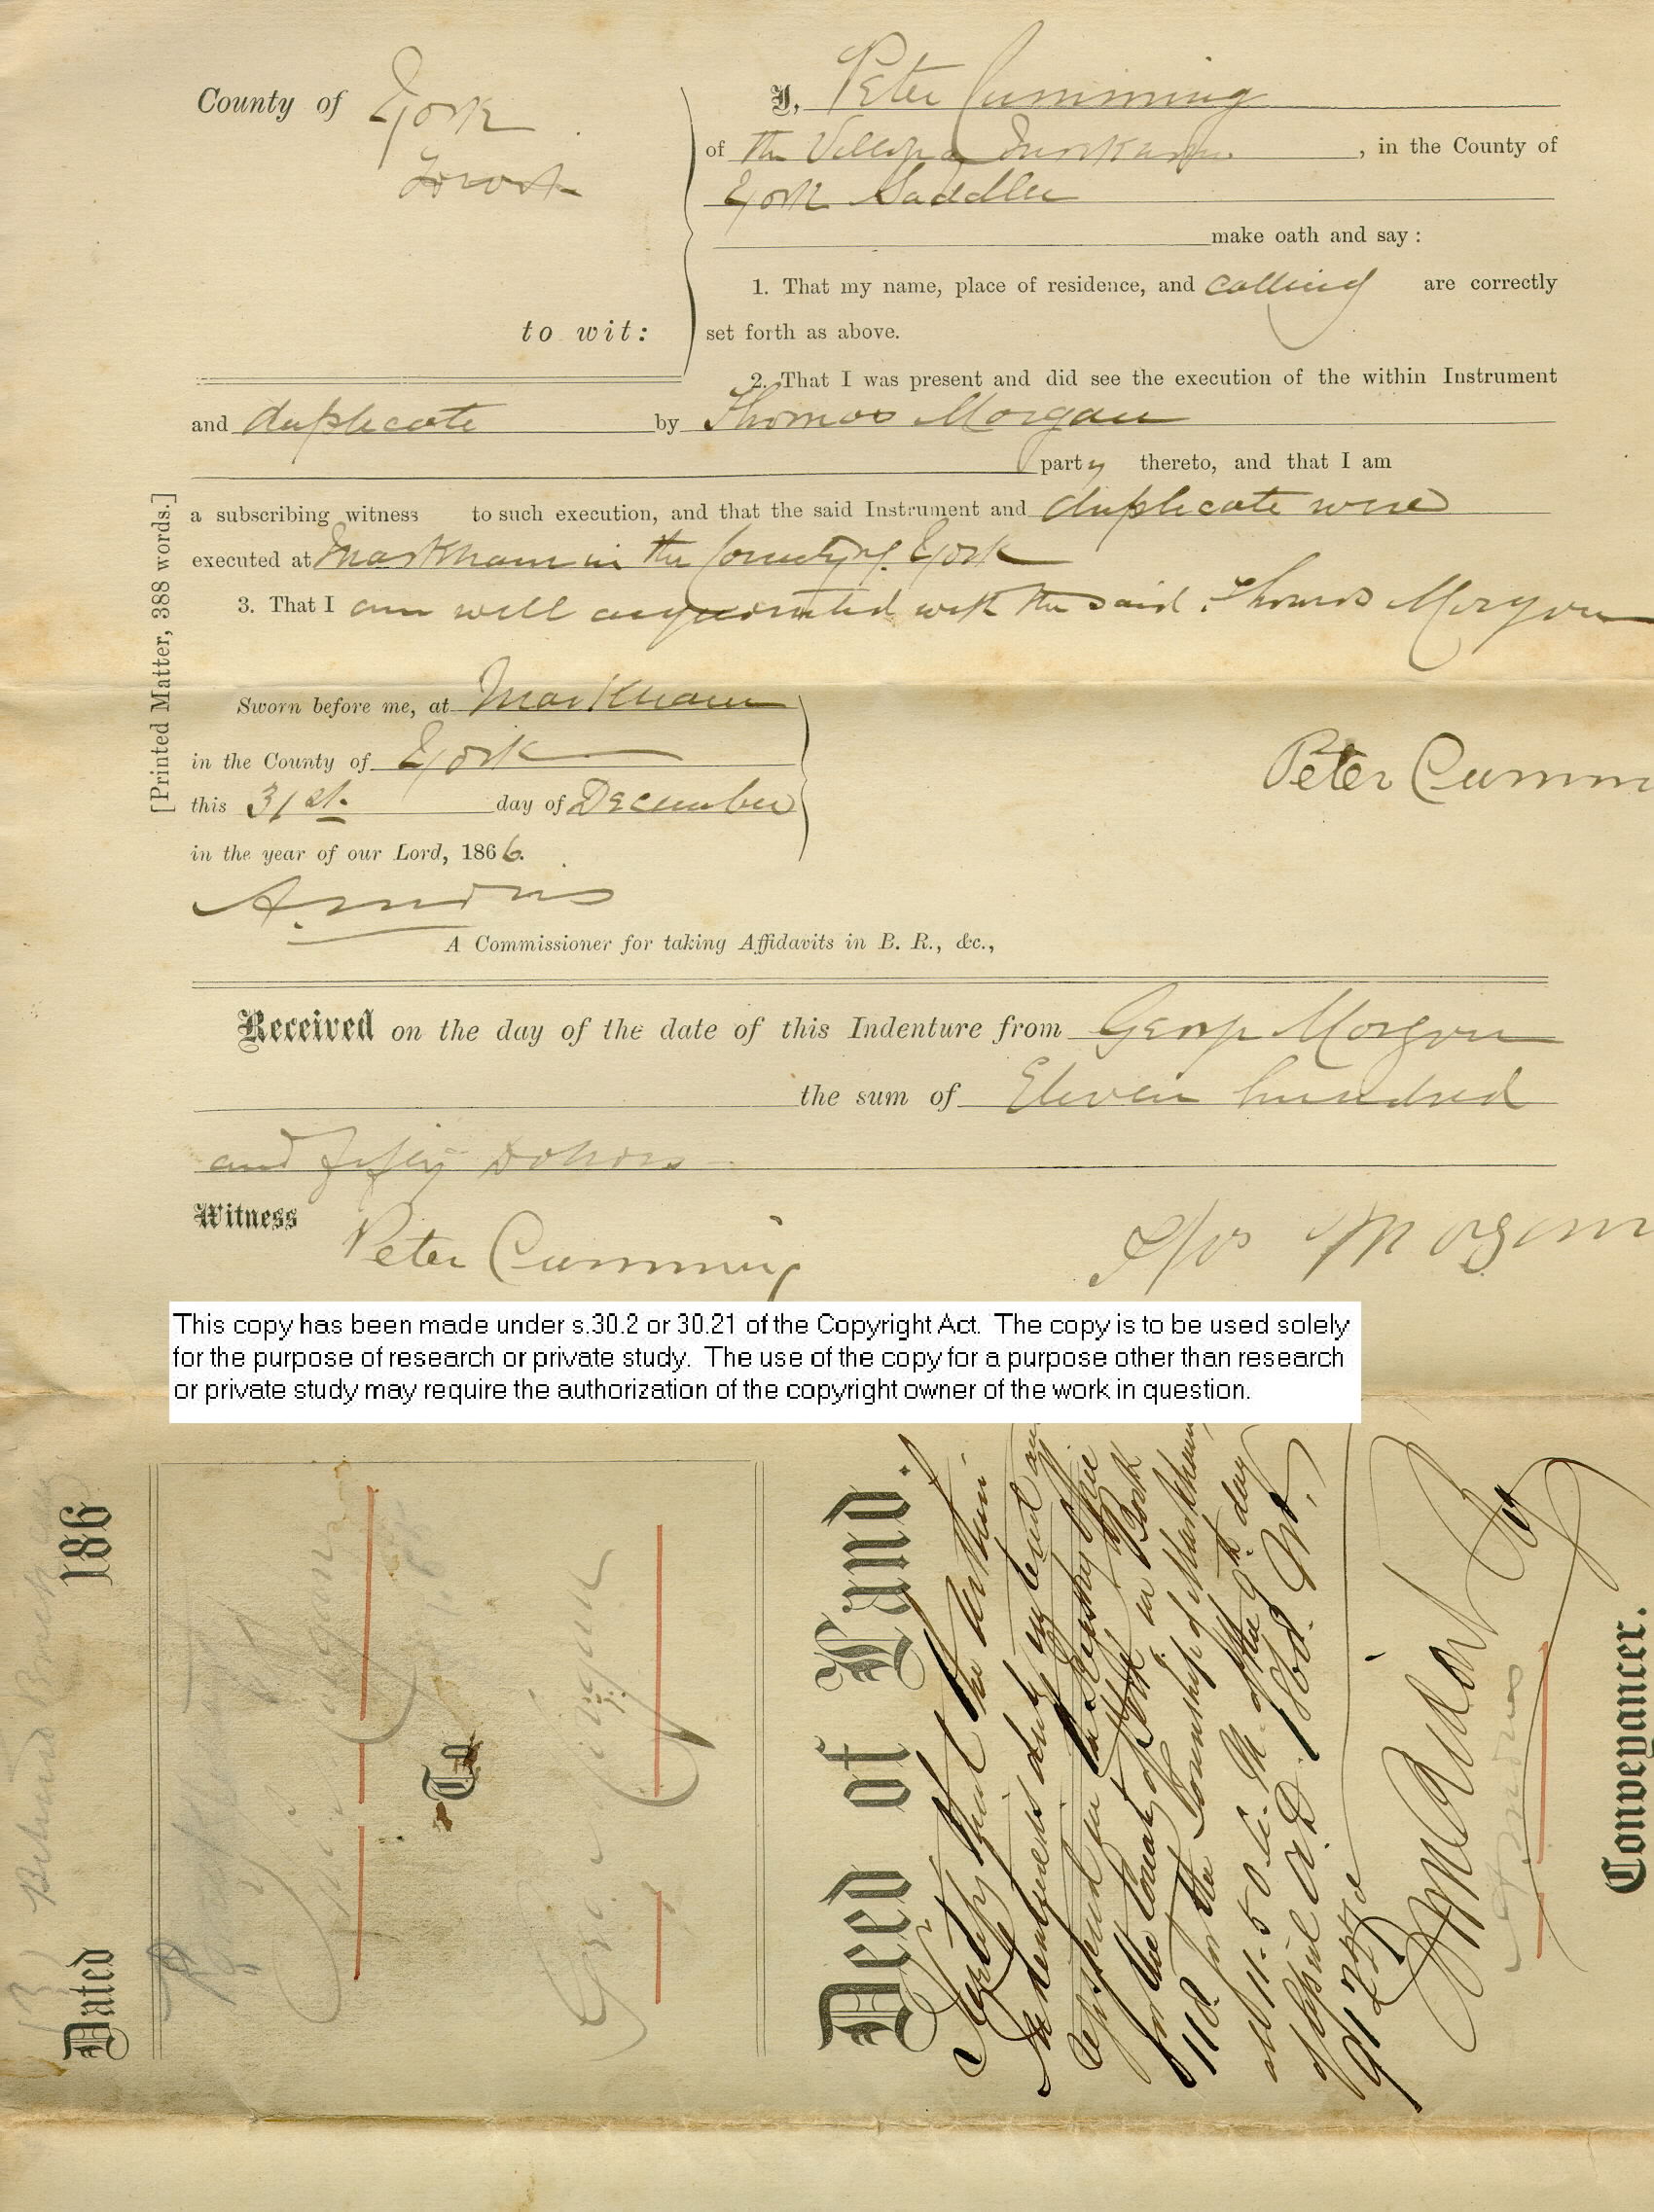 County of York
I, Peter Cumming
of the Village of Markham, in the County of
York Saddler
make oath and say :
1. That my name, place of residence, and calling are correctly
to wit: set forth as above.
2. That I was present and did see the execution of the within Instrument
and duplicate by Thomas Morgan
party thereto, and that I am
a subscribing witness to such execution, and that the said Instrument and duplicate were
executed at Markham in the County of York
3. That I am well acquainted with the said Thomas Morgan
[Printed Matter, 388 words.]
Sworn before me, at Markham
in the County of York
Peter Cumm
this 31st. day of December
in the year of our Lord, 1866.
A Commissioner for taking Affidavits in B. R., &c.,
Received on the day of the date of this Indenture from George Morgan
the sum of Eleven hundred
and fifty Dollars
Witness
Peter Cumming
Thos Morgan
This copy has been made under s.30.2 or 30.21 of the Copyright Act. The copy is to be used solely
for the purpose of research or private study. The use of the copy for a purpose other than research
or private study may require the authorization of the copyright owner of the work in question.
Dated 186
To
Deed of Land.
I certify that the within
Indenture is duly entered and
registered in the Registry Office
for the County of York in Book
for the Township of Markham
at 11.50 A.M. of the 9th day
of April A.D. 1868.
Conveyancer.